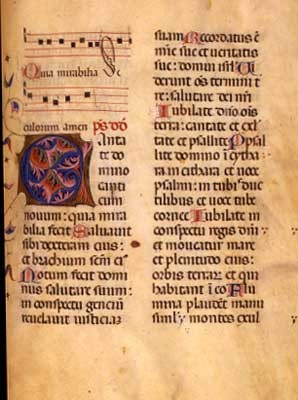 Quia mirabilia Se
culorum amen ps dd
Canta
te do
mino
canti
cum
novum: quia mira
bilia fecit Saluavit
sibi dextera eius:
et brachium sem ci
Notum fecit domi
nus salutare suum:
in conspectu gencium
reuelauit iusticiaz
suam Recordatus e
mie sue et ueritatis
sue: domui isrl Ui
derunt os termini t
re: salutare dei nri
Iubilate dno ois
terra: cantate et exl
tate et psallite Psal
lite domino i cytha
ra in cithara et uoce
psalmi: in tubis duc
tilibus et uoce tube
cornee Iubilate in
conspectu regis dni:
et moueatur mare
et plenitudo eius:
orbis terrar et qui
habitant i eo Flu
mina plaudent manu
siml montes exul